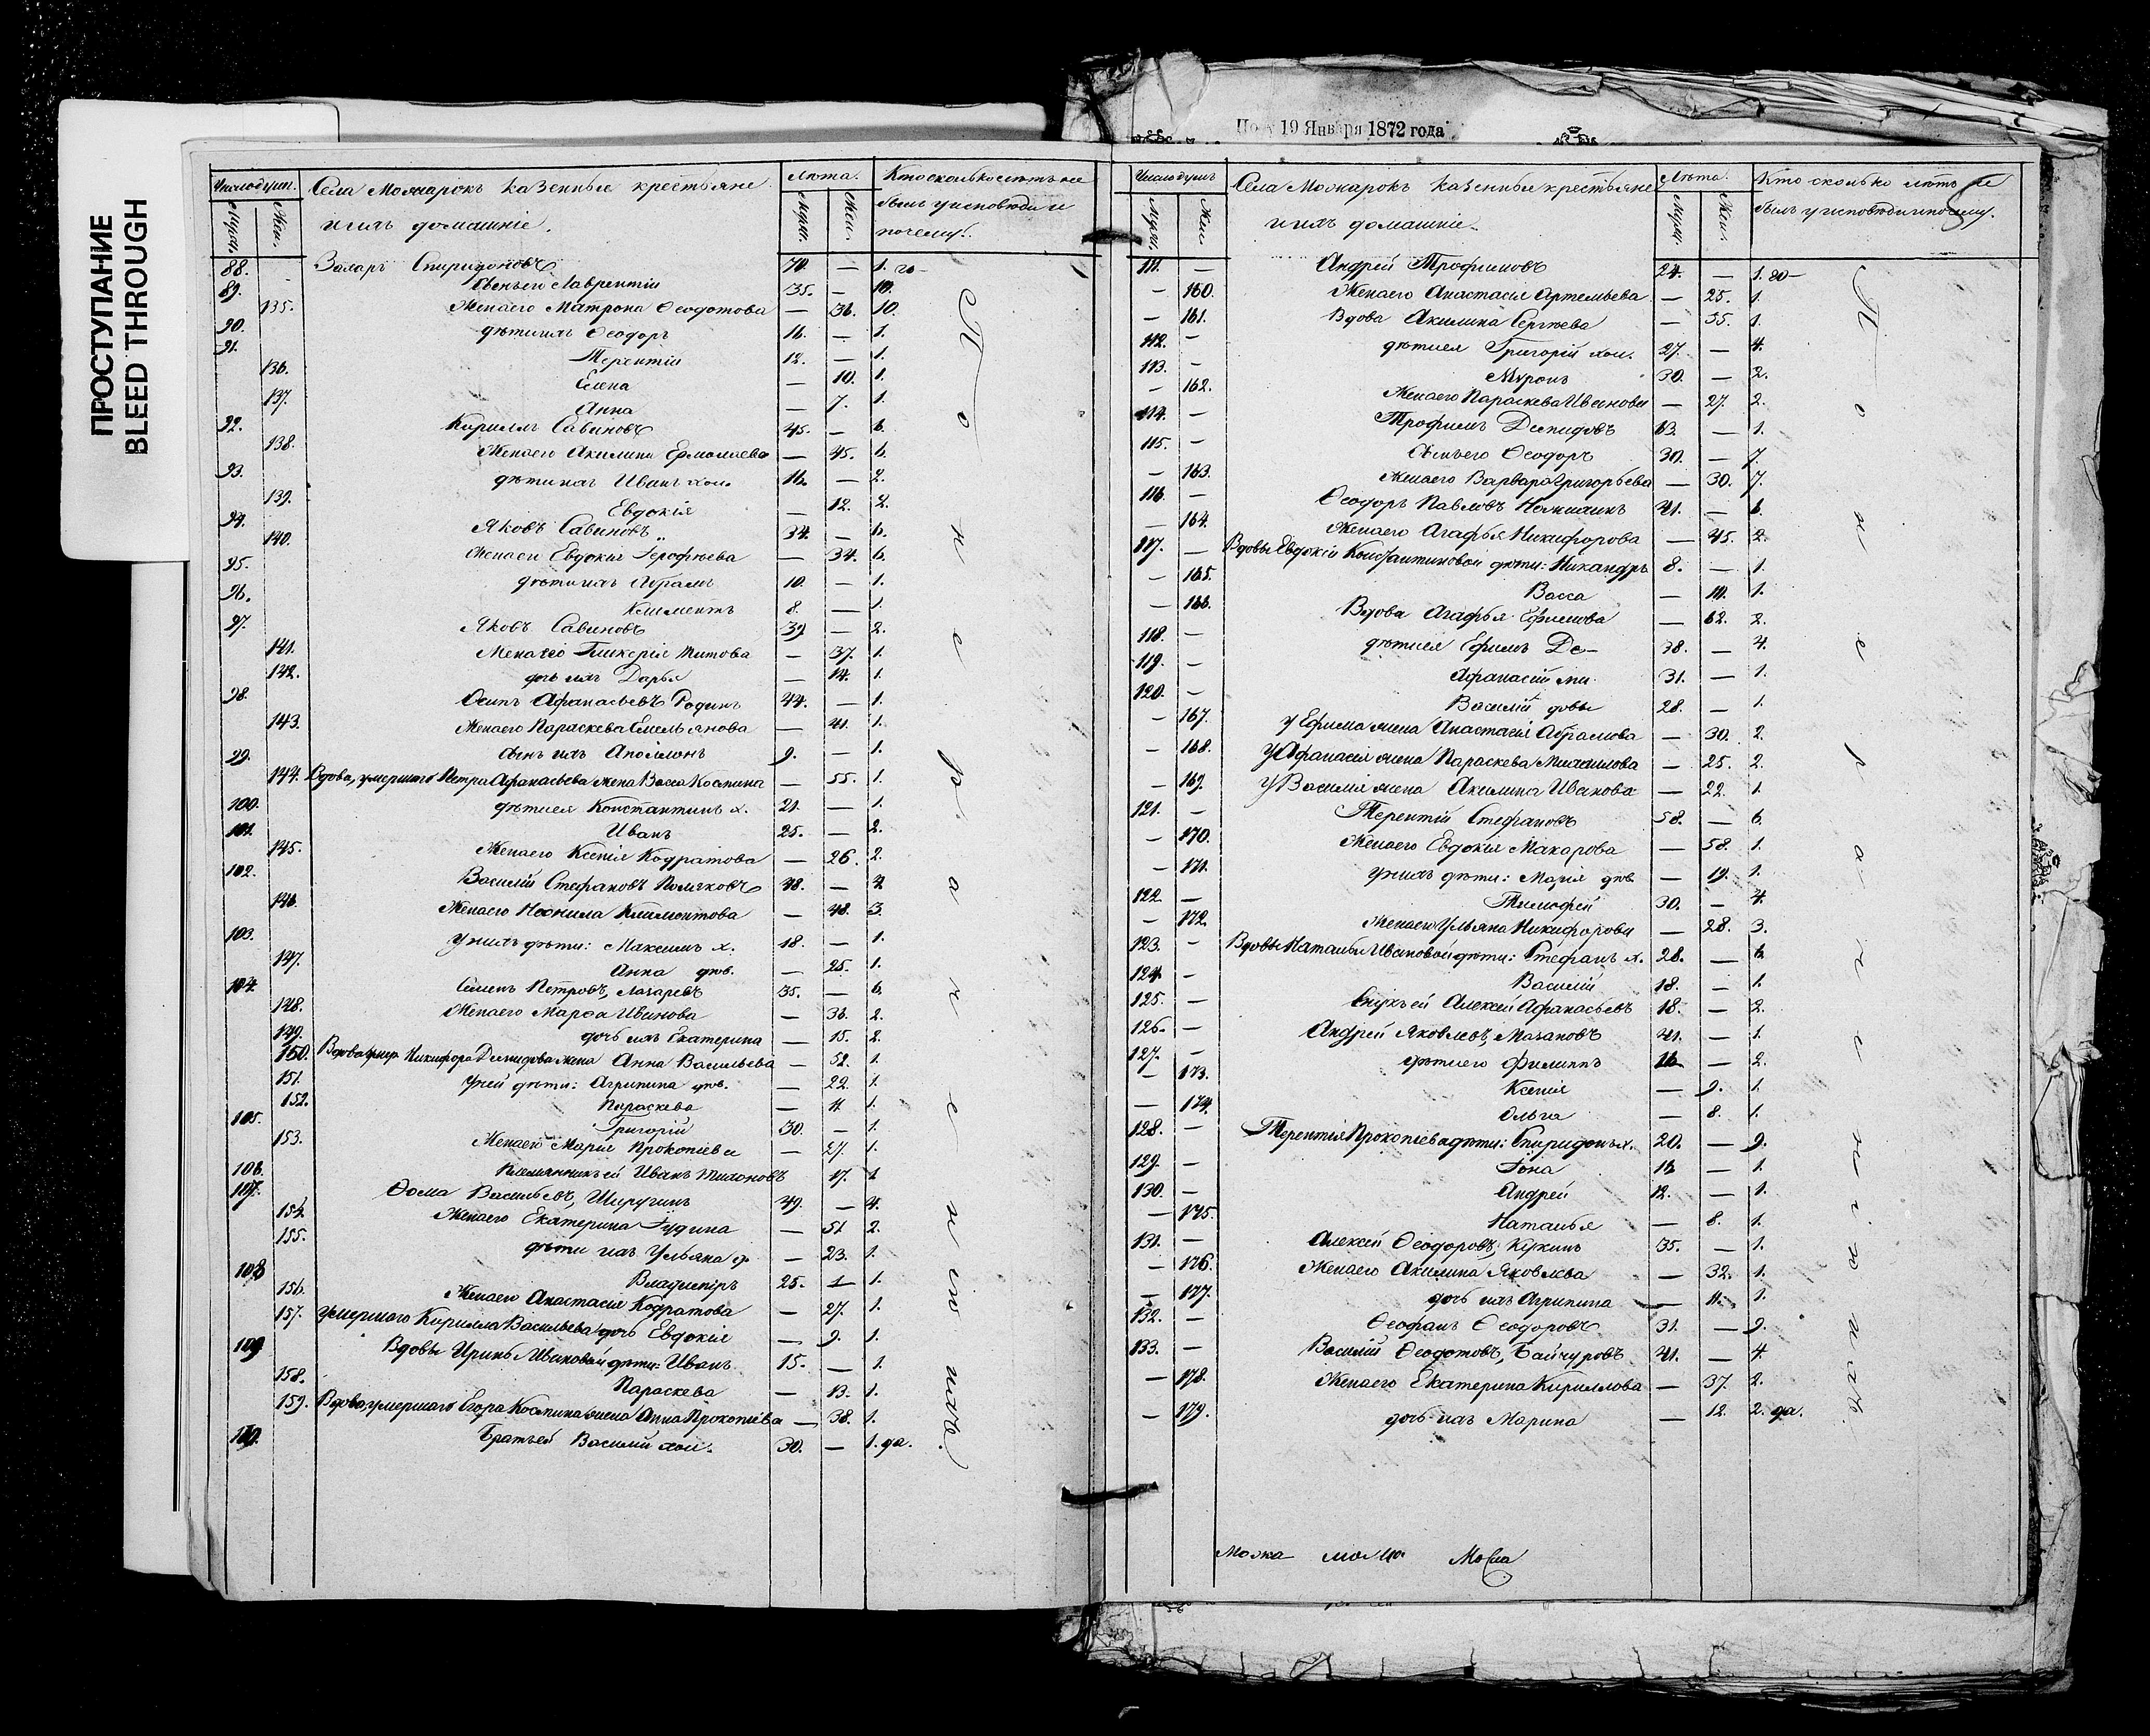 ПРОСТУПАНИЕ
BLEED THROUGH
19 Января 1872 года
Число душ. Села Можарокъ казенные крестьяне Лѣта. Кто сколько лѣтъ не
Муж. Жен. и ихъ домашніе. Муж. Жен. былъ у исповѣди и почему.
88. Спиридоновъ 70. — 1. го-
89. Сынъ его Лаврентій 35. — 10.
135. Жена его Матрона Ѳеодотова — 36. 10.
90. дѣти ихъ Ѳеодоръ 16. — 1.
91. Терентій 12. — 1.
136. Елена — 10. 1.
137. Анна — 7. 1.
92. Кириллъ Савиновъ 45. — 6.
138. Жена его Акилина Ермолаева — 45. 6.
93. дѣти ихъ Иванъ хол. 16. — 2.
139. Евдокія — 12. 2.
94. Яковъ Савиновъ 34. — 6.
140. Жена его Евдокія Ерофѣева — 34. 6.
95. дѣти ихъ Абрамъ 10. — 1.
96. Климентъ 8. — 1.
97. Яковъ Савиновъ 39 — 2.
141. Жена его Гликерія Титова — 37. 1.
142. дочь ихъ Дарья — 14. 1.
98. Осипъ Афанасьевъ Родинъ 44. — 1.
143. Жена его Параскева Емельянова — 41. 1.
99. сынъ ихъ Аполлонъ 9. — 1.
144. Вдова, умершаго Петра Афанасьева жена Васса Космина — 55. 1.
100. дѣти ея Константинъ х. 21. — 1.
101. Иванъ 25. — 2.
145. Жена его Ксенія Кодратова — 26. 2.
102. Василій Стефановъ Поляковъ 48. — 4.
146. Жена его Неонила Климонтова — 48. 3.
103. У нихъ дѣти: Максимъ х. 18. — 1.
147. Анна дѣв. — 25. 1.
104. Семенъ Петровъ, Лазаревъ 35. — 6.
148. Жена его Марѳа Иванова — 36. 2.
149. дочь ихъ Екатерина — 15. 2.
150. Вдова умер. Никифора Демидова жена Анна Васильева — 52. 1.
151. У ней дѣти: Агрипина дѣв. — 22. 1.
152. Параскева — 11. 1.
105. Григорій 30. — 1.
153. Жена его Марія Прокопіева — 27. 1.
106. Племянникъ ей Иванъ Тихоновъ 17. 1
107. Ѳома Васильевъ, Ширугинъ 49. — 4.
154. Жена его Екатерина Гудина — 51 2.
155. дѣти ихъ Ульяна д. — 23. 1.
108 Владиміръ 25. 1.
156. Жена его Анастасія Кодратова — 27. 1.
157. Умершаго Кирилла Васильева дочь Евдокія — 9. 1.
109 Вдовы Ирины Ивановой дѣти: Иванъ 15. — 1.
158. Параскева — 13. 1.
159. Вдова, умершаго Егора Космина жена Анна Прокопіева — 38. 1.
110. Братъ ей Василій хол. 30. — 1. да.
По нерачению ихъ.
Число душъ Села Можарокъ казенные крестьяне Лѣта. Кто сколько лѣтъ не
Муж. Жен. и ихъ домашніе. Муж. Жен. былъ у исповѣди и почему.
111. — Андрей Трофимовъ 24. — 1. го-
— 160. Жена его Анастасія Артемьева — 25. 1.
— 161. Вдова Акилина Сергѣева — 55. 1.
112. — дѣти ея Григорій хол. 27. — 4.
113. — Миронъ 30. — 2.
— 162. Жена его Параскева Иванова — 27. 2.
114. — Трофимъ Демидовъ 63. — 1.
115. — Сынъ его Ѳеодоръ 30. — 7.
— 163. Жена его Варвара Григорьева — 30. 7.
116. — Ѳеодоръ Павловъ 41. — 6.
— 164. Жена его Агафья Никифорова — 45. 2.
117. — Вдовы Евдокіи Константиновой дѣти: Никандръ 8. — 1.
— 165. Васса — 10. 1.
— 166. Вдова Агафья Ефимова — 62. 2.
118. — дѣти ея Ефимъ Де- 38. — 4.
119. — Афанасій ми 31. — 1.
120. — Василій довы 28. — 1.
— 167. У Ефима жена Анастасія Абрамова — 30. 2.
— 168. У Афанасія жена Параскева Михаилова — 25. 2.
— 169. У Василія жена Акилина Иванова — 22. 1.
121. — Терентій Стефановъ 58. — 6.
— 170. Жена его Евдокія Макарова — 58. 1.
— 171. У нихъ дѣти: Марія дѣв. — 19. 1.
122. — Тимофей 30. — 4.
— 172. Жена его Ульяна Никифорова — 28. 3.
123. — Вдовы Натальи Ивановой дѣти: Стефанъ х. 28. — 6.
124. — Василій 18. — 1.
125. — Внукъ ей Алексей Афанасьевъ 18. — 2.
126. — Андрей Яковлевъ, Мазановъ 41. — 1.
127. — дѣти его Филиппъ 16 — 2.
— 173. Ксенія — 9. 1.
— 174. Ольга — 8. 1.
128. — Терентія Прокопіева дѣти: Спиридонъ х. 20. — 9.
129. — Іона 18 — 1.
130. — Андрей 12. — 1.
— 175. Наталья — 8. 1.
131. — Алексей Ѳеодоровъ, Кукинъ 35. — 1.
— 176. Жена его Акилина Яковлева — 32. 1.
— 177. дочь ихъ Агрипина — 11. 1.
132. — Ѳеофанъ Ѳеодоровъ 31. — 9.
133. — Василій Ѳеодотовъ, Байчуровъ 41. — 4.
— 178. Жена его Екатерина Кириллова — 37. 2.
— 179. дочь ихъ Марина — 12. 2. да.